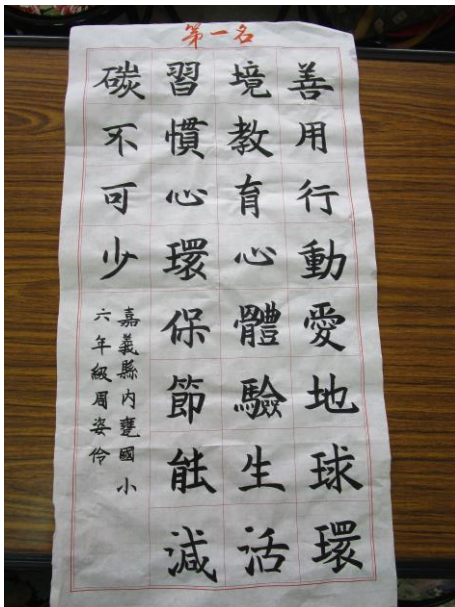 第一名
善用行動愛地球環
境教育心體驗生活
習慣心環保節能減
碳不可少
嘉義縣內甕國小
六年級周姿伶